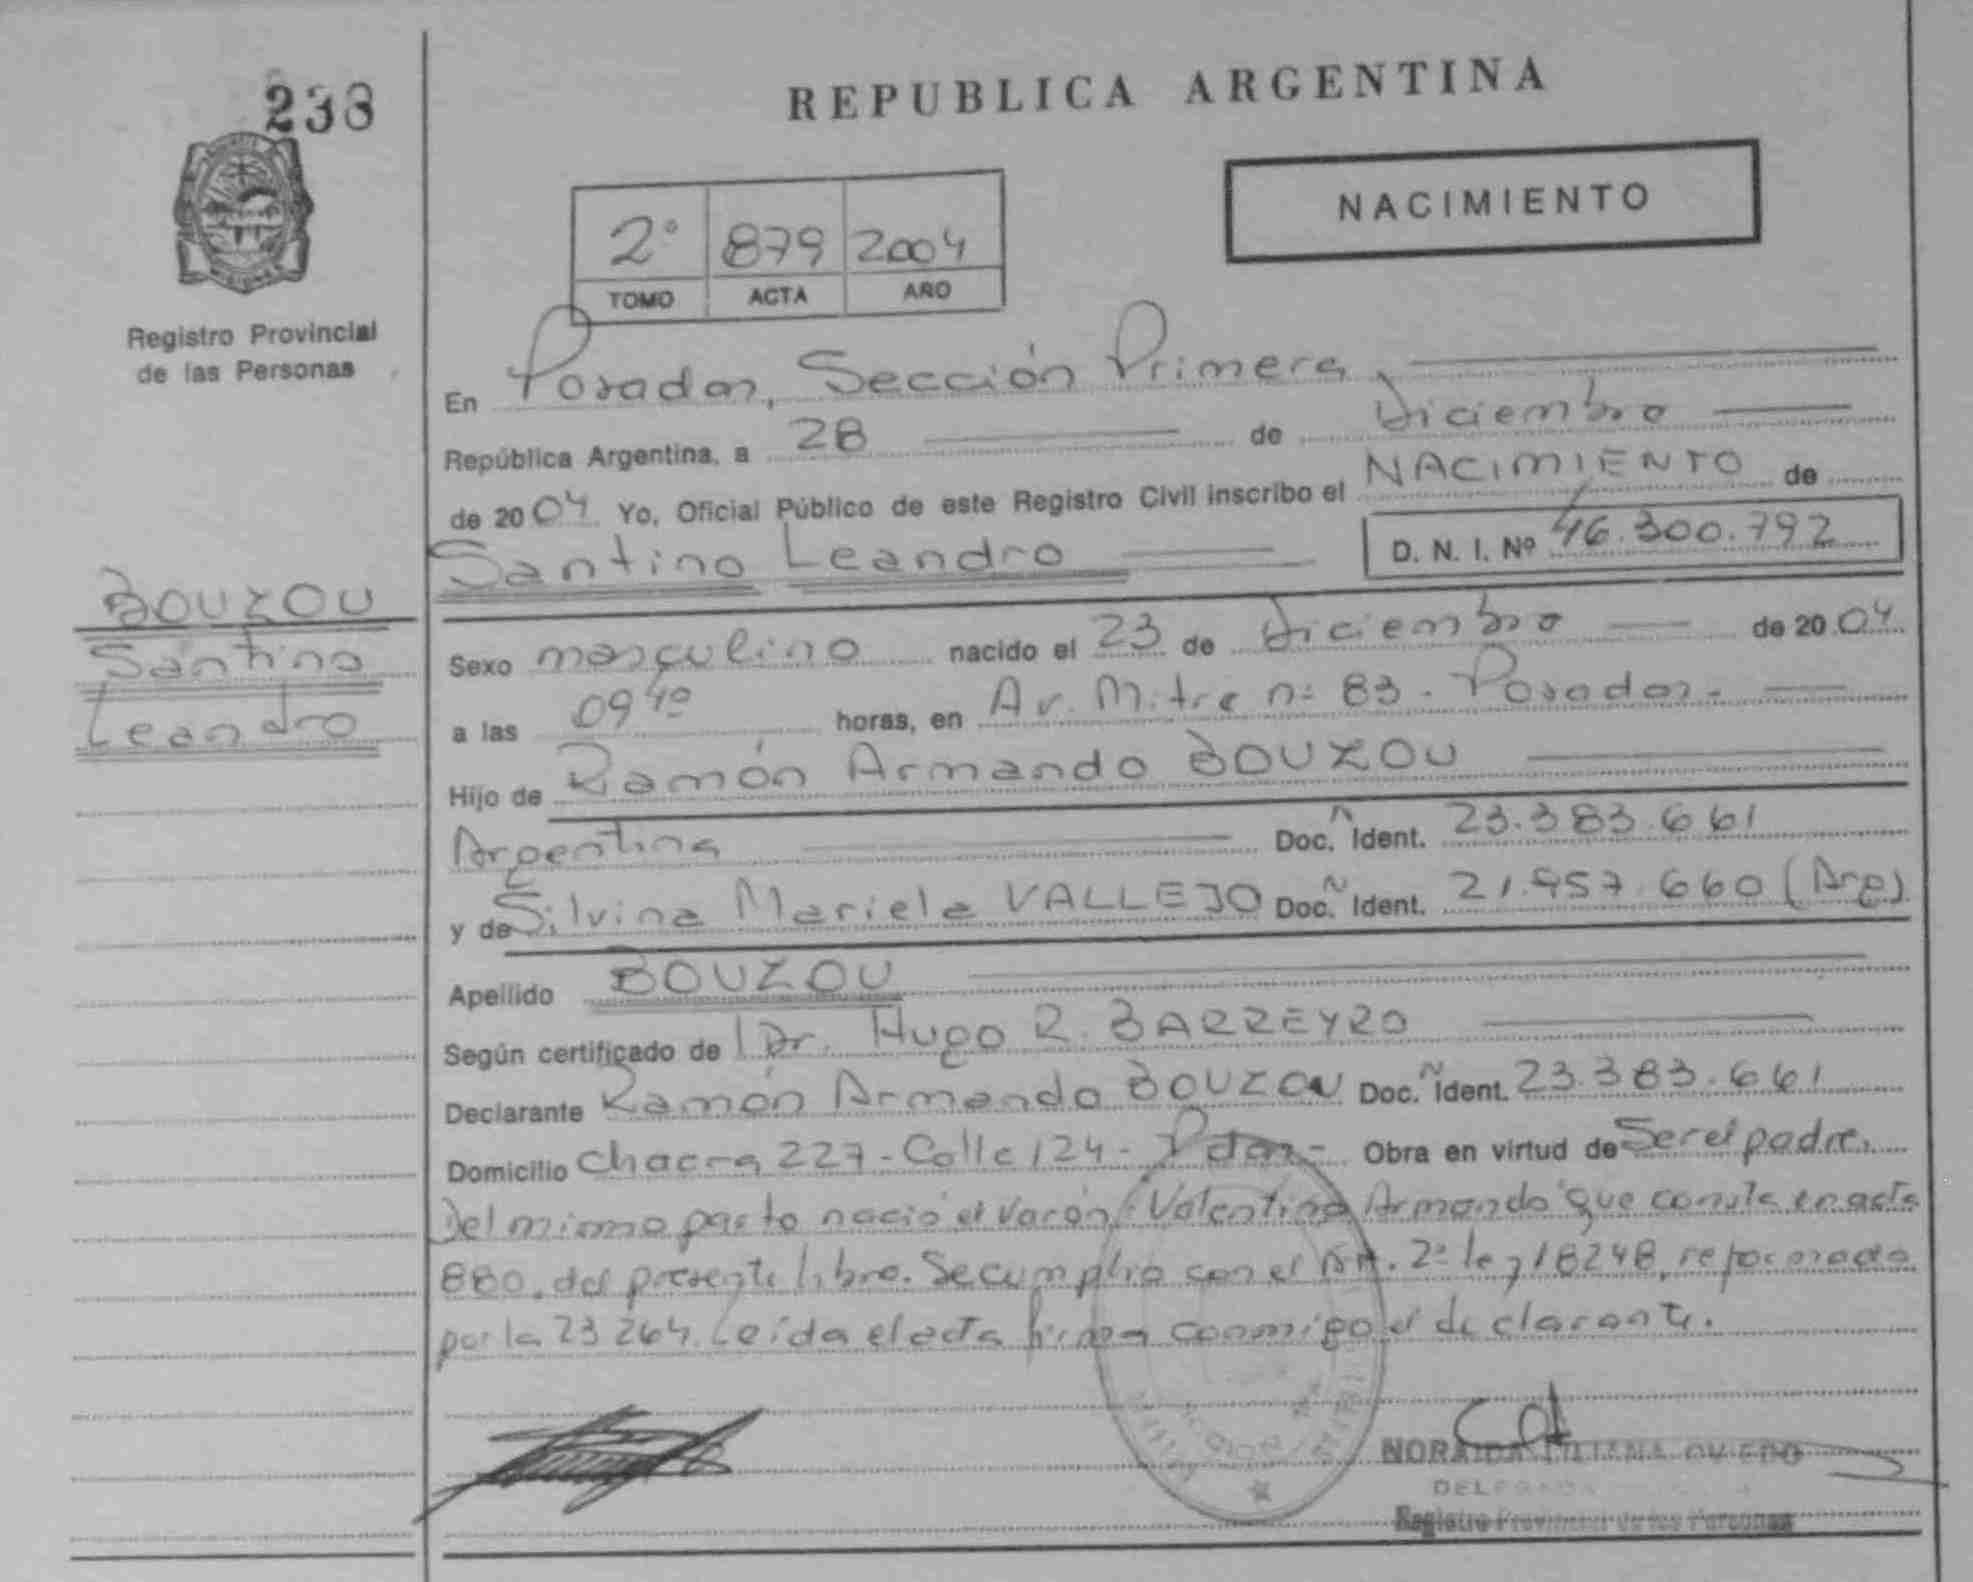 238
REPUBLICA ARGENTINA
NACIMIENTO
2° 879 2004
TOMO ACTA AÑO
Registro Provincial
de las Personas
En Posadas, Sección Primera
República Argentina, a 28 de Diciembre
de 2004 Yo, Oficial Público de este Registro Civil inscribo el NACIMIENTO de
Santino Leandro D. N. I. Nº 46.300.792
BOUZOU
Santino
Leandro
Sexo masculino nacido el 23 de Diciembre de 2004
a las 09 40 horas, en Av. Mitre nº 83 - Posadas -
Hijo de Ramón Armando BOUZOU
Argentina Doc. N Ident. 23.383.661
y de Silvina Mariela VALLEJO Doc. N Ident. 21.957.660 (Arg)
Apellido BOUZOU
Según certificado de Dr. Hugo R. BARREYRO
Declarante Ramón Armando BOUZOU Doc. N Ident. 23.383.661
Domicilio Chacra 227 - Calle 124 - Pdas - Obra en virtud de Ser el padre.
Del mismo parto nació el varón: Valentino Armando que consta en acta
880, del presente libro. Se cumplió con el Art. 2º ley 18248, reformada
por la 23264. Leída el acta firma conmigo el declarante.
NORAIDA LILIANA OVIEDO
DELEGADA
Registro Provincial de las Personas